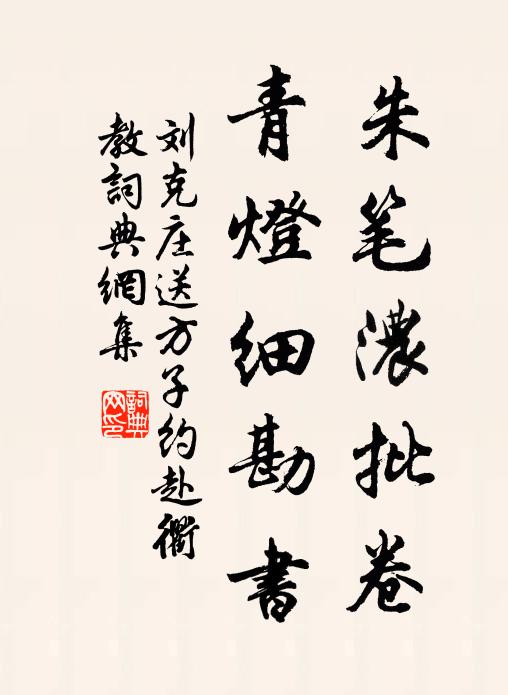 朱笔濃批卷
青燈细勘書
刘克庄送方子约赴衢
教詞典網集
詞典网印